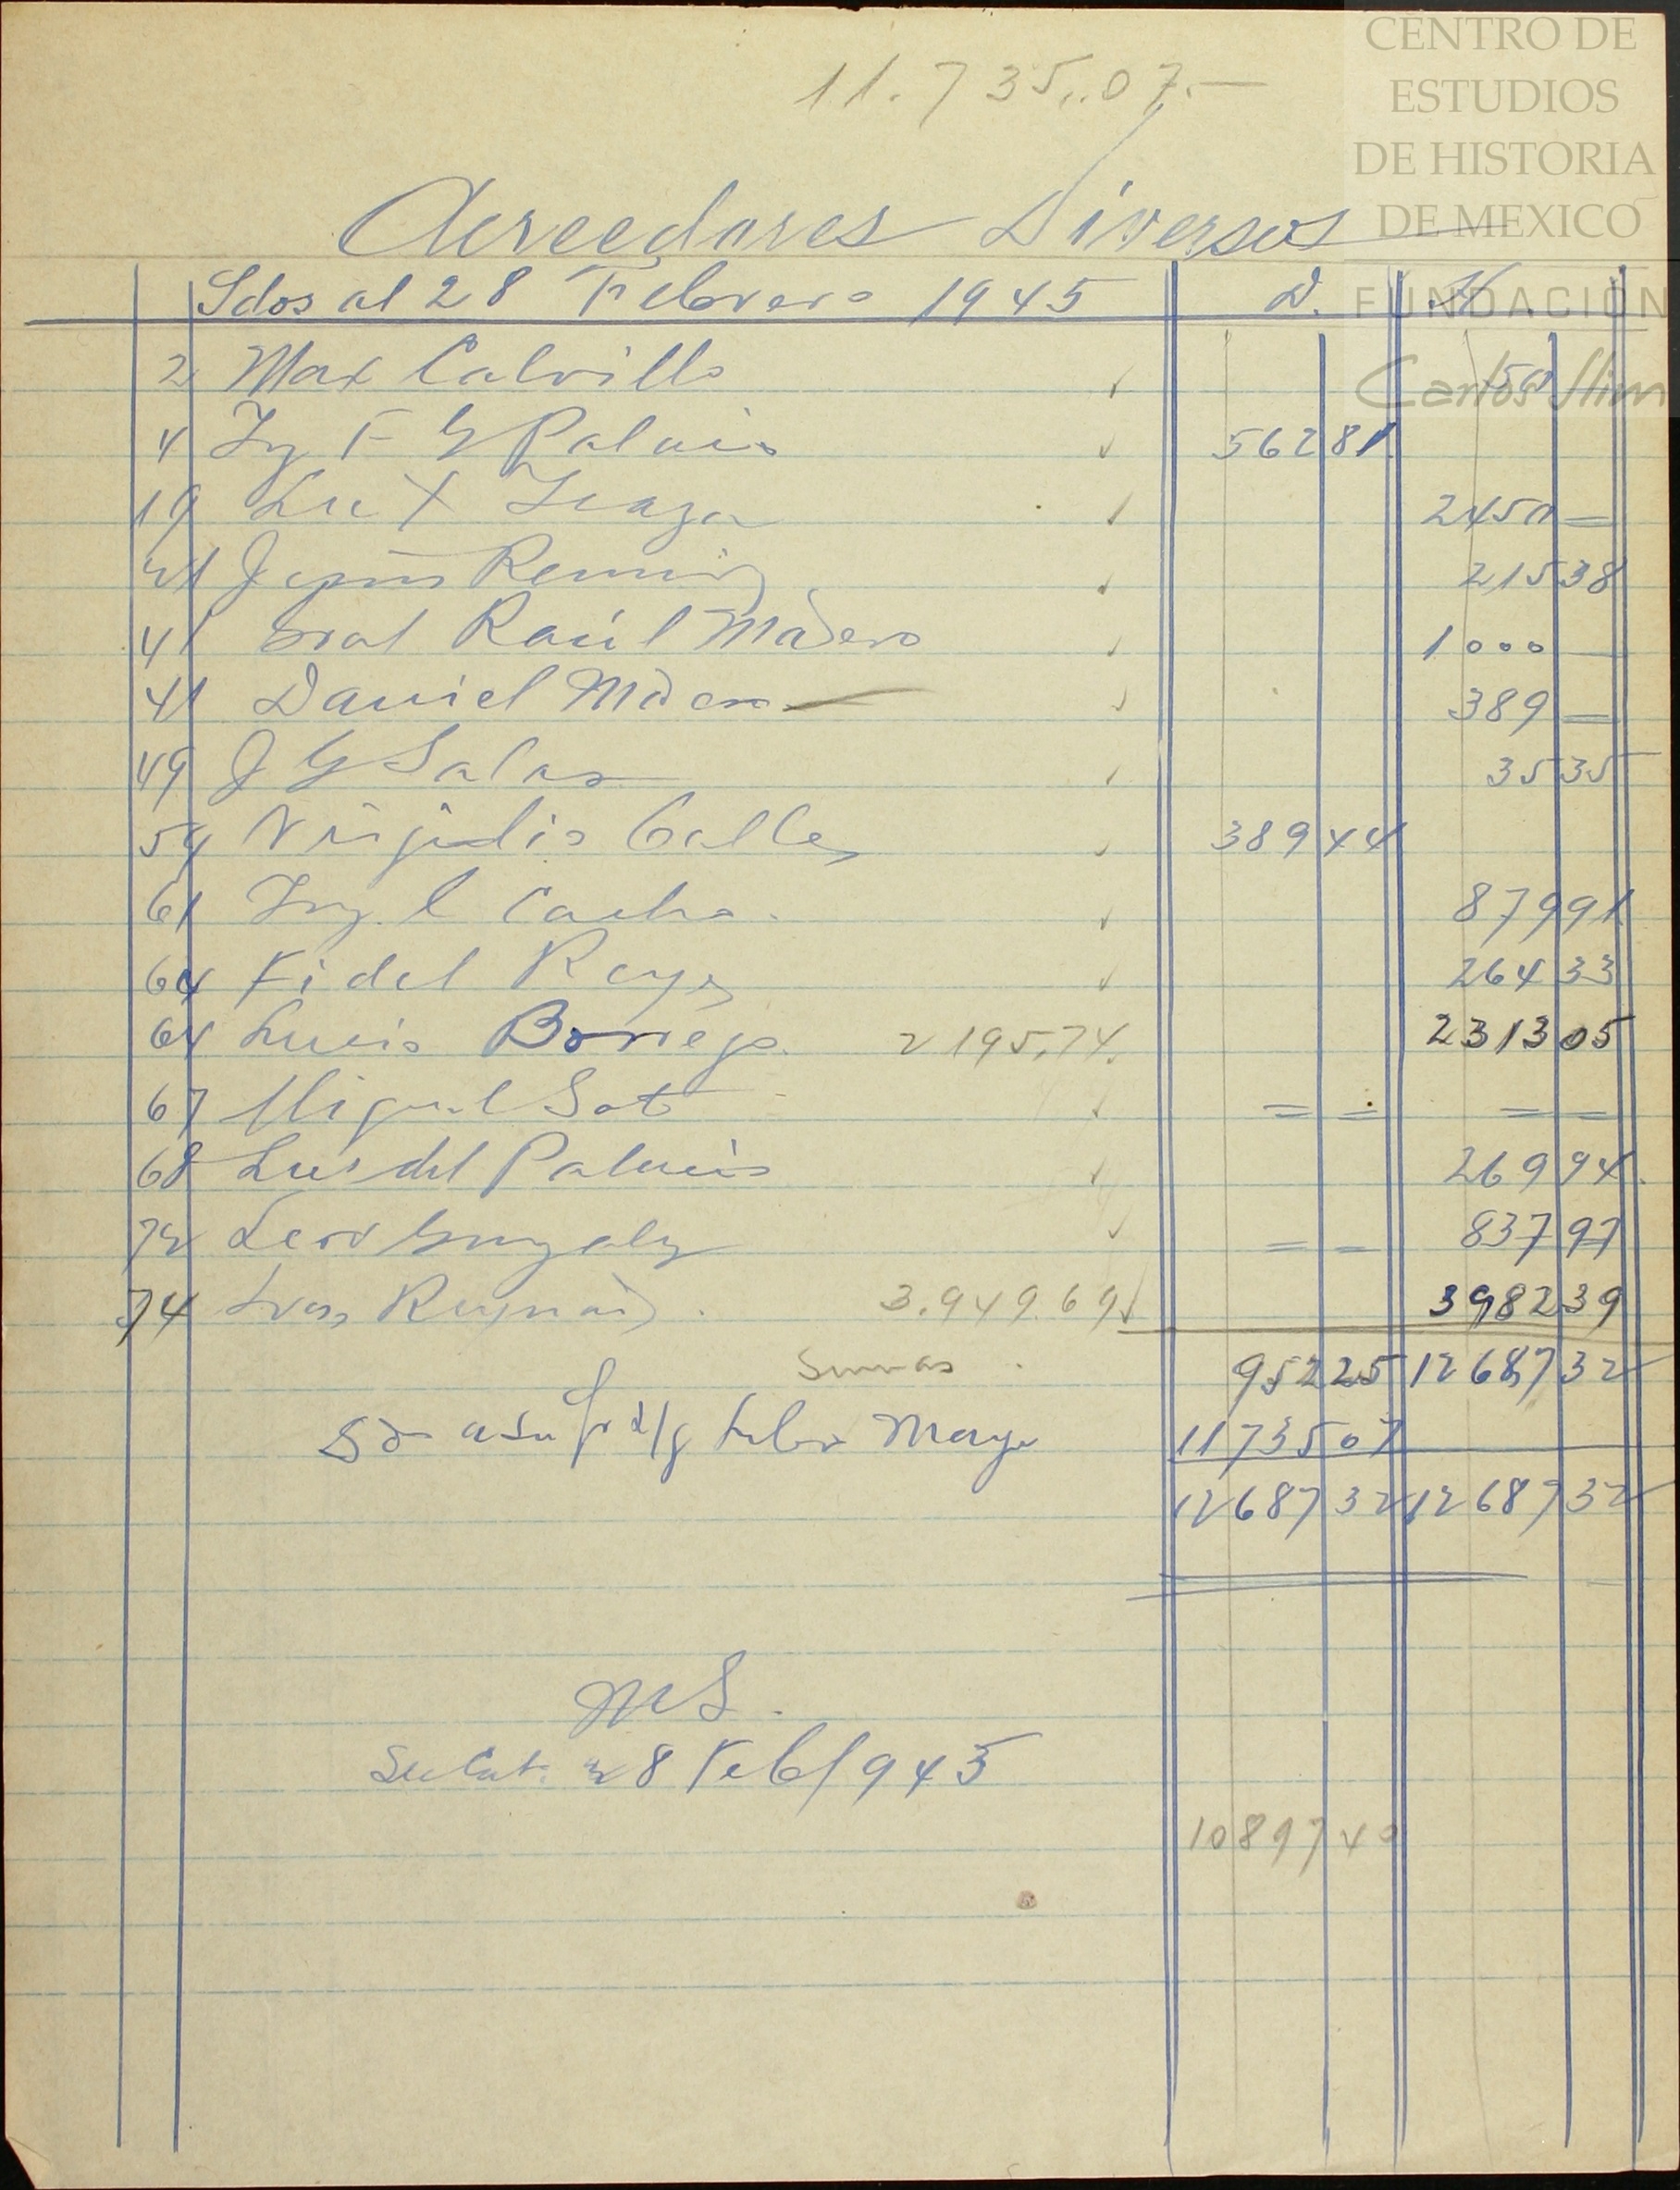 CENTRO DE
ESTUDIOS
DE HISTORIA
DE MEXICO
FUNDACIÓN
Carlos Slim
11.735.07.—
Acreedores Diversos
Sdos al 28 Febrero 1945 D. H.
2 Max Calvillo ✓ 50
4 Ing F G Palacio ✓ 562 81
19 Lic ✓ 2450 =
21 Jesus Ramirez ✓ 215 38
41 Gral Raúl Madero ✓ 1000 —
41 Daniel Madero ✓ 389 =
49 J G Salas ✓ 35 35
59 Virgilio Calles ✓ 389 44
61 Ing. C Cacho. ✓ 879 91
64 Fidel Reyes ✓ 264 33
64 Lucio Borrego. 2195.74. 2313 05
67 Miguel Soto ✓ = = = =
68 Luis del Palacio ✓ 269 94
72 Gonzalez ✓ = = 837 97
74 Ivan Reynaud. 3.949.69 ✓ 3982 39
Sumas. 952 25 12687 32
11735 07
12687 32 12687 32
MS.
28 Feb/945
10897 40